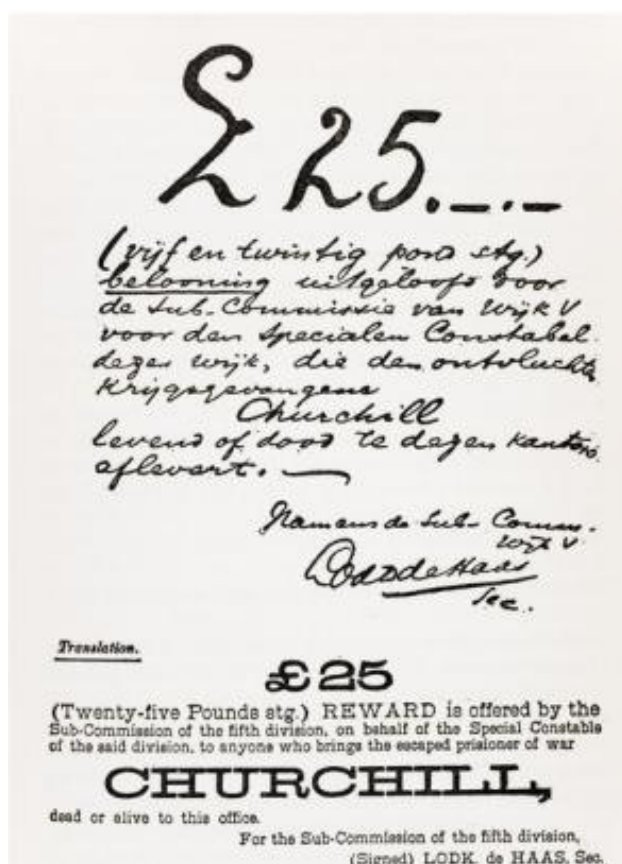 £25.-.-
(vijf en twintig pond stg.)
belooning uitgeloofd door
de Sub-Commissie van Wijk V
voor den Specialen Constabel
dezer wijk, die den ontvluchte
Krijgsgevangene
Churchill
levend of dood te dezen kantore
aflevert.
Namens de Sub-Comm.
Wijk V
Lodk de Haas
Sec.
Translation.
£25
(Twenty-five Pounds stg.) REWARD is offered by the
Sub-Commission of the fifth division, on behalf of the Special Constable
of the said division, to anyone who brings the escaped prisioner of war
CHURCHILL,
dead or alive to this office.
For the Sub-Commission of the fifth division,
(Signed) LODK. de HAAS, Sec.